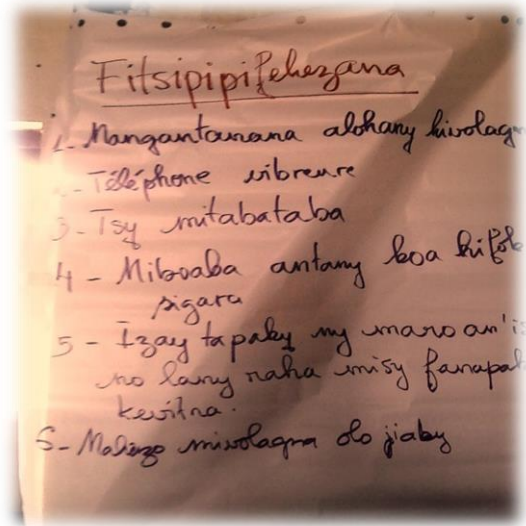 Fitsipipifehezana
1- Mangantanana alohany kivolagn
2- Téléphone vibreure
3- Tsy mitabataba
4 - Miboaba antany koa kifok
sigara
5 - Izay tapaky ny maro an'i
no lany raha misy fanapak
kevitra.
6- Mahazo mivolagna olo jiaby